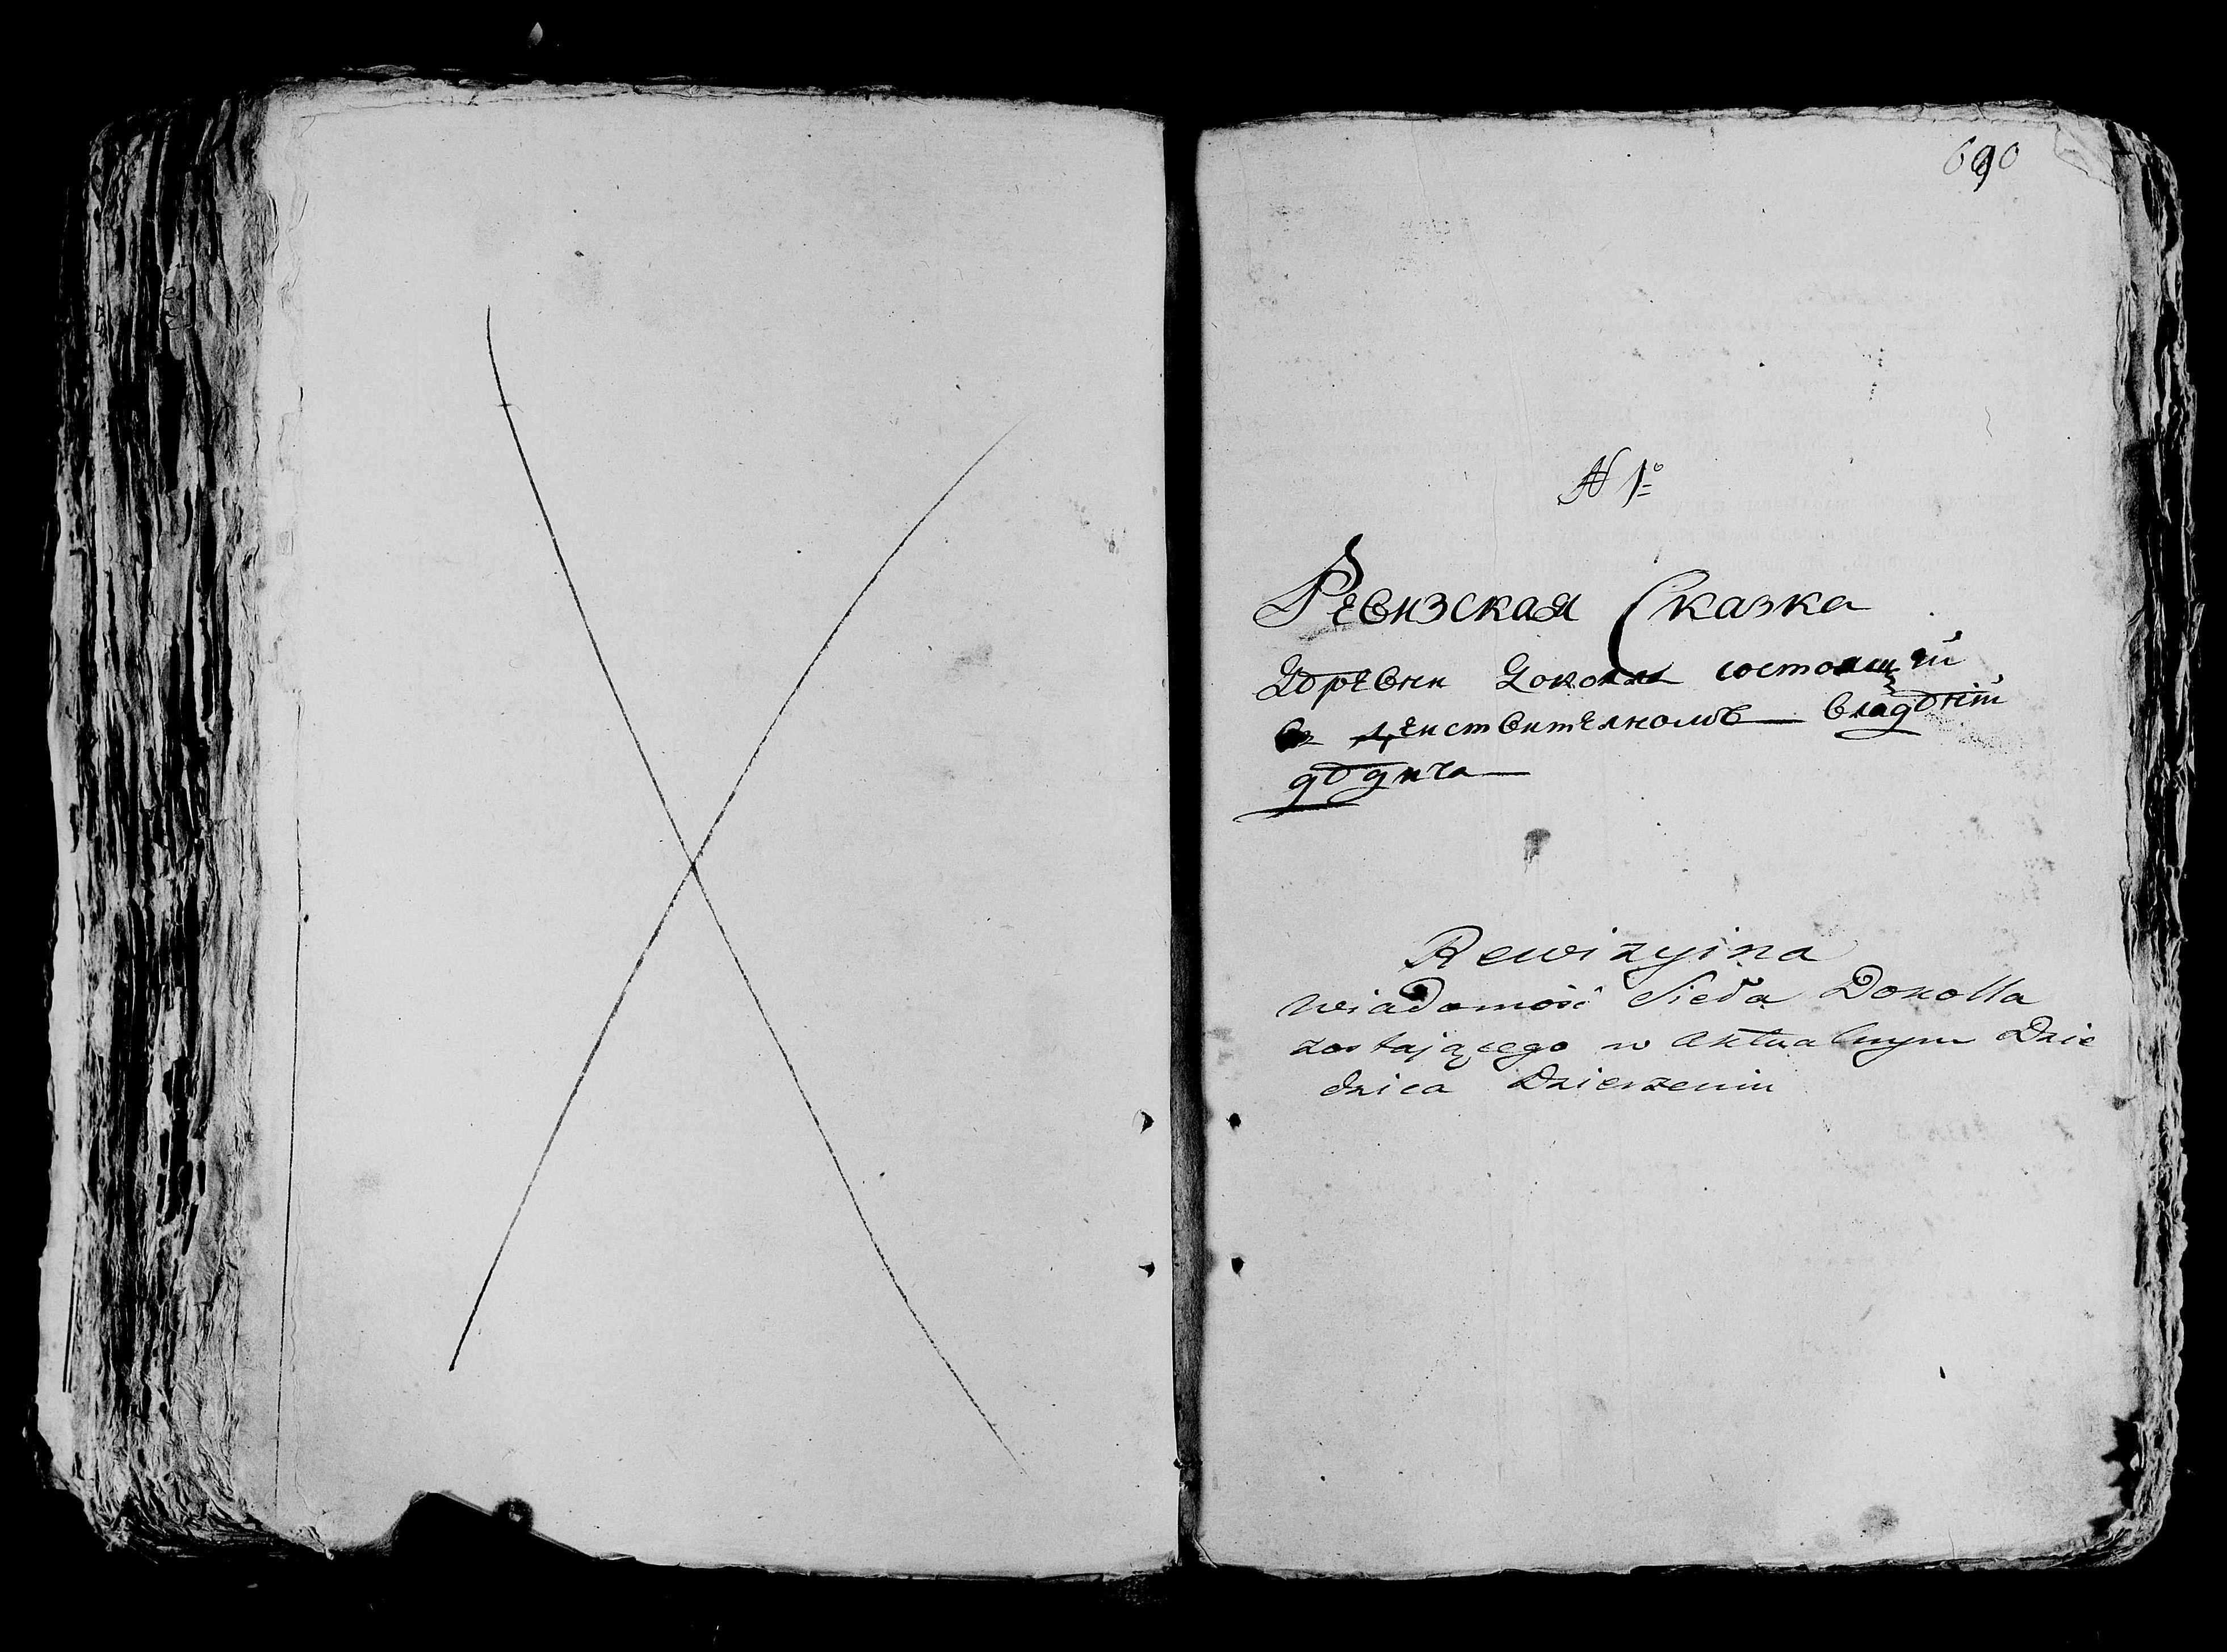 690
N 1º
Ревизская Сказка
Древни Доколя состоящей
в действителномъ владѣнiи
дѣдича
Rewizyina
wiadomość Sieda Dokolla
zostającego w aktualnym Dzie
dzica Dzierzeniu